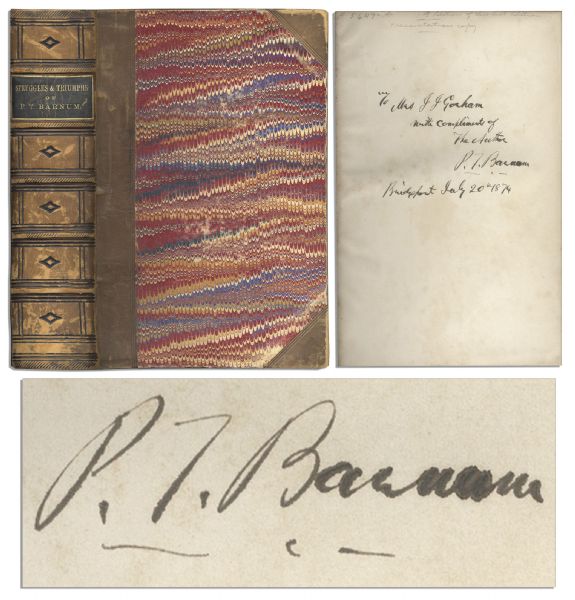 STRUGGLES & TRIUMPHS
OF
P. T. BARNUM.
presentation copy
To Mrs J J Gorham
with compliments of
The Author
P. T. Barnum
Bridgeport July 20th 1874
P. T. Barnum